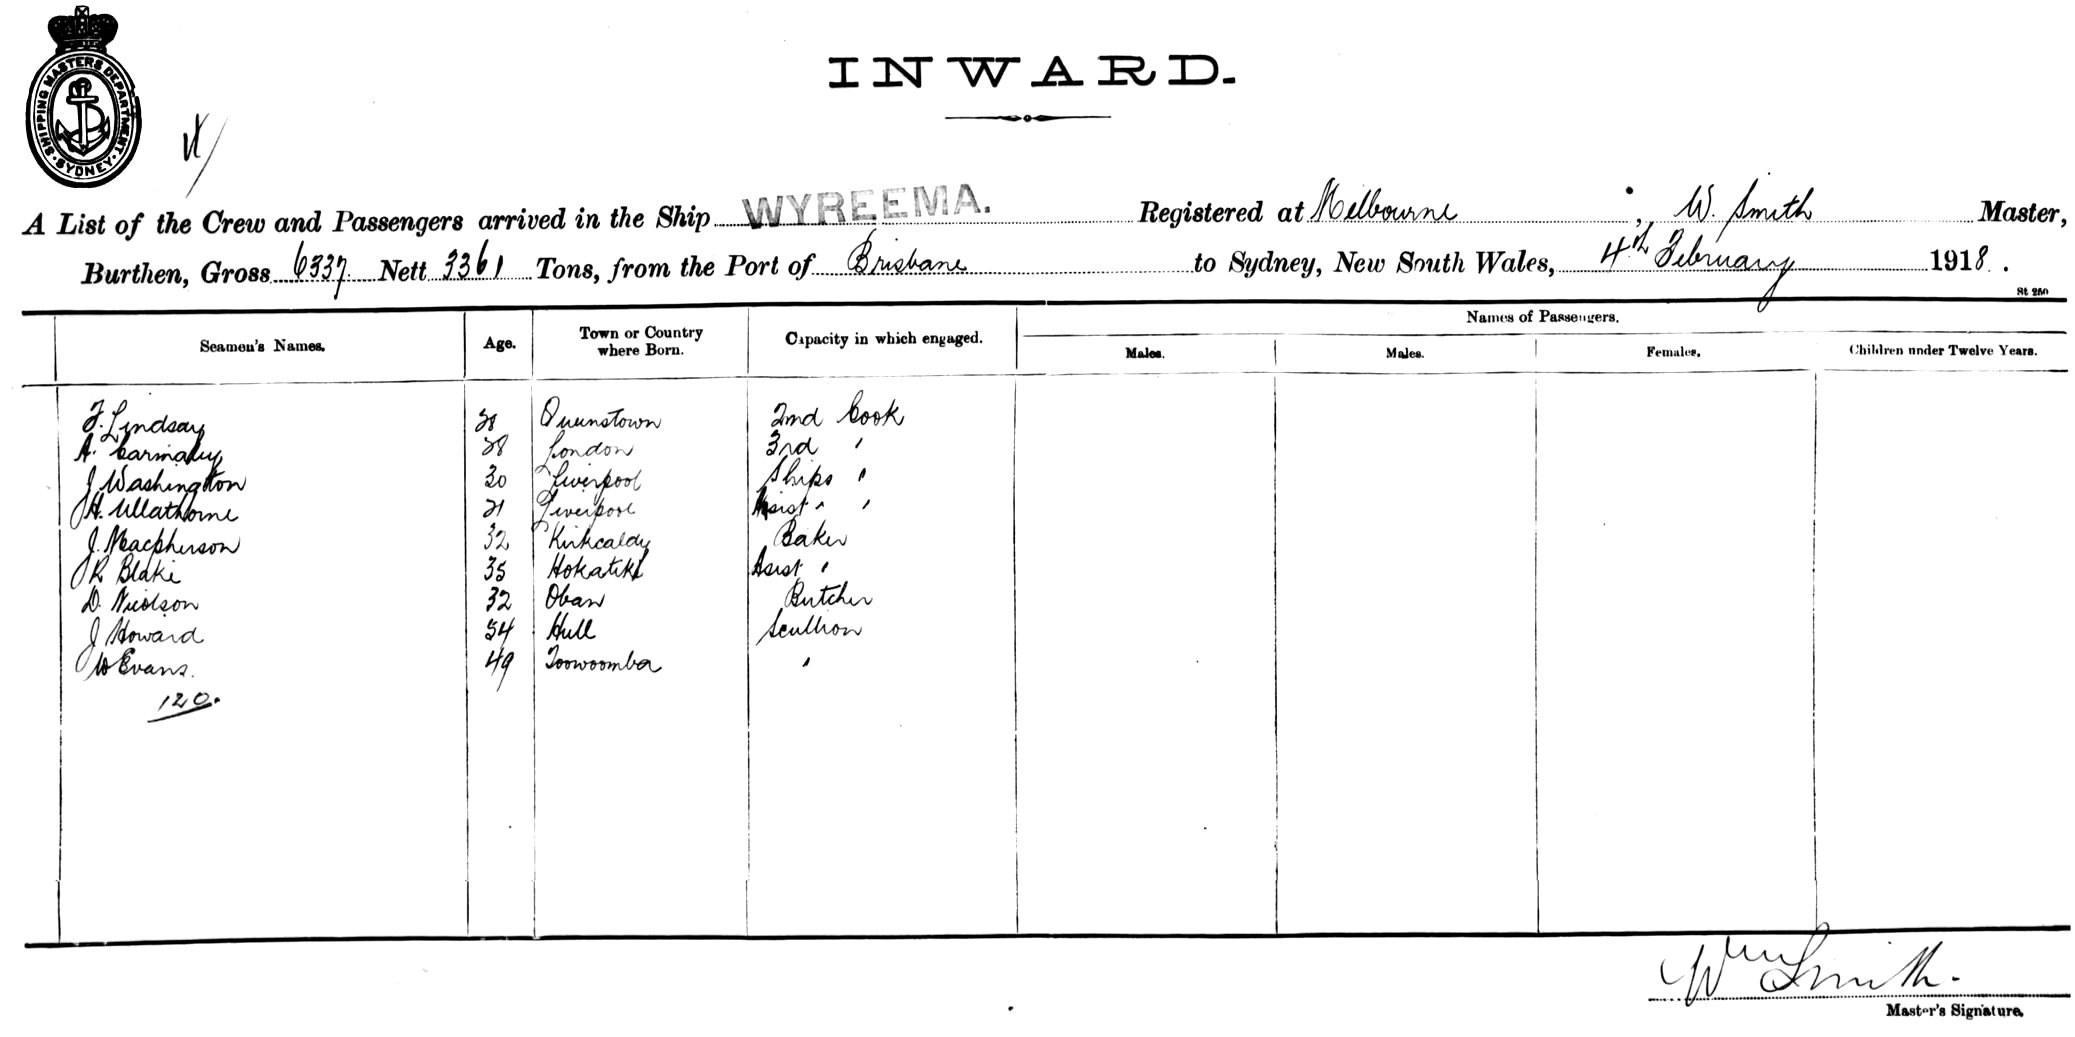 SHIPPING MASTERS DEPARTMENT
SYDNEY
INWARD.
A List of the Crew and Passengers arrived in the Ship WYREEMA. Registered at Melbourne ; W. Smith Master,
Burthen, Gross 6337 Nett 3361 Tons, from the Port of Brisbane to Sydney, New South Wales, 4th February 1918.
St 250
Seamen's Names. Age. Town or Country where Born. Capacity in which engaged. Names of Passengers.
Males. Males. Females. Children under Twelve Years.
F. Lindsay 28 Queenstown 2nd Cook
A. 28 London 3rd "
J Washington 30 Liverpool Ships "
H. Ullathorne 21 Liverpool Asist " "
J. Macpherson 32 Kirkcaldy Baker
R Blake 35 Asist "
D. Nicolson 32 Oban Butcher
J Howard 34 Hull Scullion
W Evans. 49 Toowoomba "
120.
Wm Smith.
Master's Signature.